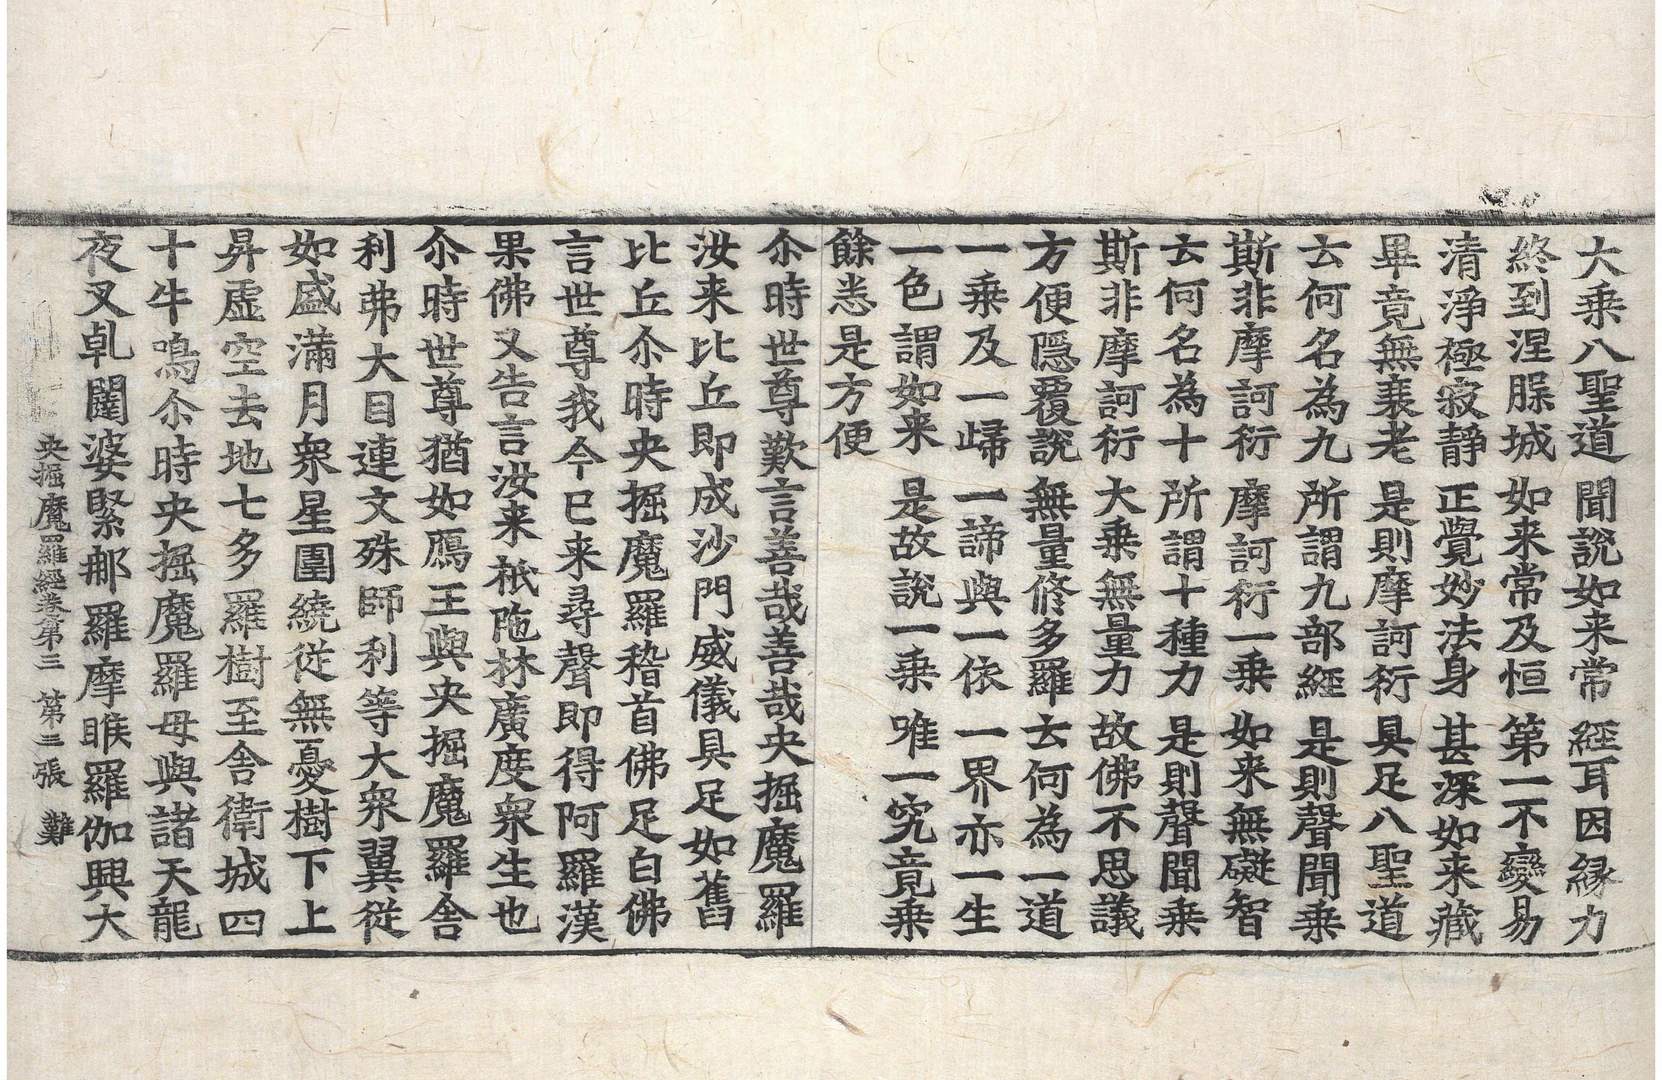 大乗八聖道 聞說如来常 經耳因縁力
終到涅脲城 如来常及恒 第一不變易
清淨極寂静 正覺妙法身 甚深如来藏
畢竟無衰老 是則摩訶衍 具足八聖道
云何名為九 所謂九部經 是則聲聞乗
斯非摩訶衍 摩訶衍一乗 如来無礙智
云何名為十 所謂十種力 是則聲聞乗
斯非摩訶衍 大乗無量力 故佛不思議
方便隱覆說 無量修多羅 云何為一道
一乗及一歸 一諦與一依 一界亦一生
一色謂如来 是故說一乗 唯一究竟乗
餘悉是方便
尒時世尊歎言善哉善哉央掘魔羅
汝来比丘即成沙門威儀具足如舊
比丘尒時央掘魔羅稽首佛足白佛
言世尊我今已来尋聲即得阿羅漢
果佛又告言汝来祇陁林廣度衆生也
尒時世尊猶如鴈王與央掘魔羅舍
利弗大目連文殊師利等大衆翼從
如盛滿月衆星圍繞從無憂樹下上
昇虛空去地七多羅樹至舍衛城四
十牛鳴尒時央掘魔羅母與諸天龍
夜叉乹闥婆緊那羅摩睺羅伽興大
央掘魔羅經卷第三 第三張 難